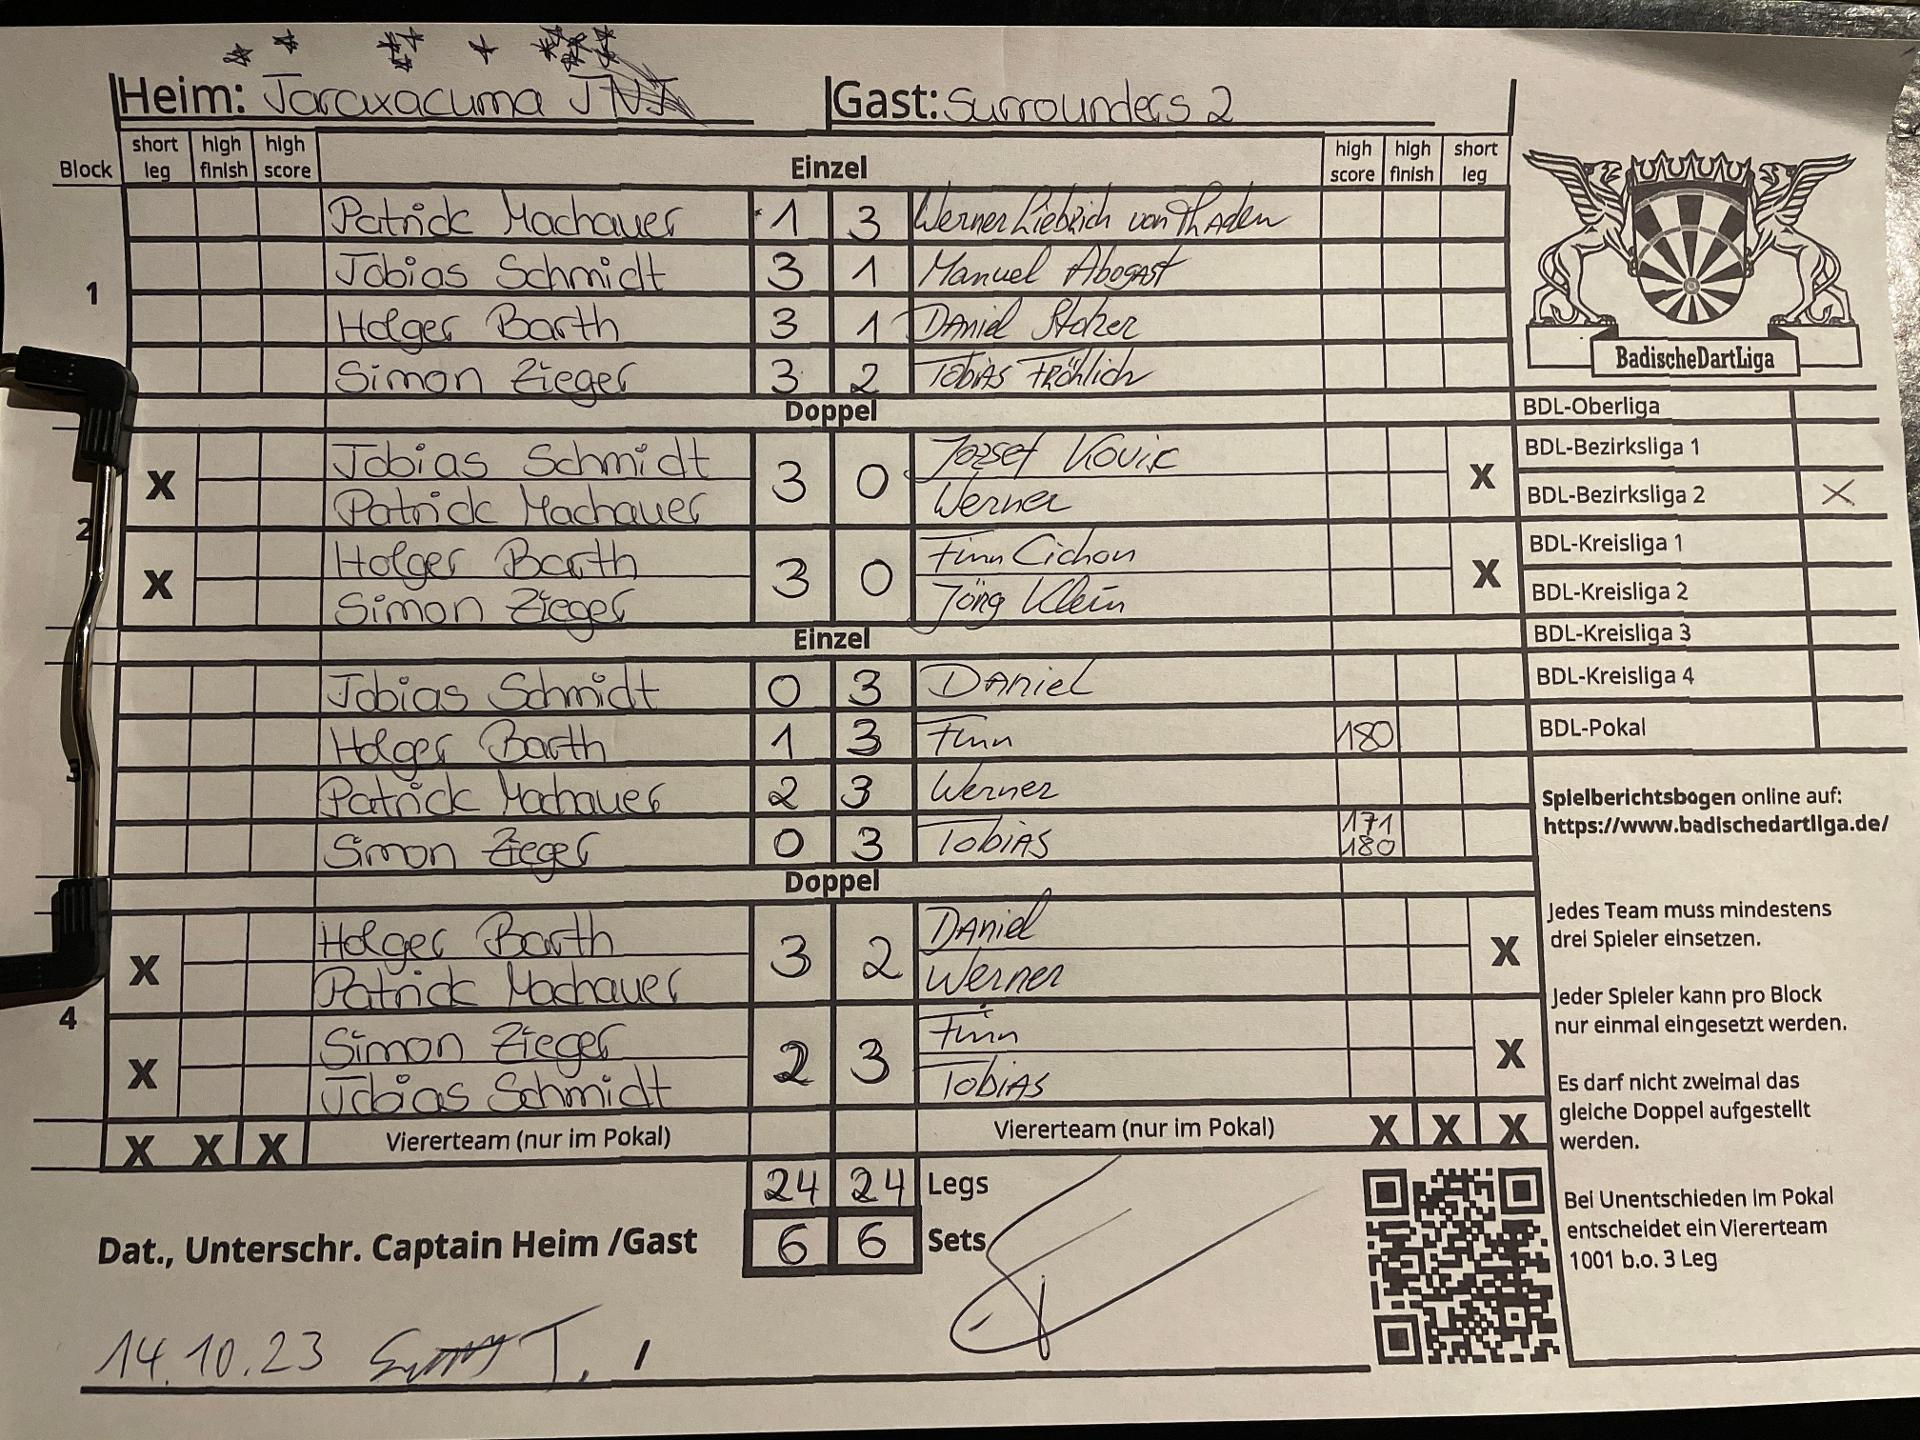 Heim: Taraxacuma Gast: Surrounders 2
Block short leg high finish high score Einzel high score high finish short leg
1
Patrick Machauer 1 3 Werner Liebrich von Thaden
Tobias Schmidt 3 1 Manuel Abogast
Holger Barth 3 1 Daniel
Simon Zieger 3 2 Tobias Fröhlich
Doppel
2
X Tobias Schmidt 3 0 Jozsef X
Patrick Machauer Werner
X Holger Barth 3 0 Finn Cichon X
Simon Zieger Jörg Klein
Einzel
3
Tobias Schmidt 0 3 Daniel
Holger Barth 1 3 Finn 180
Patrick Machauer 2 3 Werner
Simon Zieger 0 3 Tobias 171 180
Doppel
4
X Holger Barth 3 2 Daniel X
Patrick Machauer Werner
X Simon Zieger 2 3 Finn X
Tobias Schmidt Tobias
X X X Viererteam (nur im Pokal) Viererteam (nur im Pokal) X X X
24 24 Legs
Dat., Unterschr. Captain Heim /Gast 6 6 Sets
14.10.23
BadischeDartLiga
BDL-Oberliga
BDL-Bezirksliga 1
BDL-Bezirksliga 2 X
BDL-Kreisliga 1
BDL-Kreisliga 2
BDL-Kreisliga 3
BDL-Kreisliga 4
BDL-Pokal
Spielberichtsbogen online auf:
https://www.badischedartliga.de/
Jedes Team muss mindestens
drei Spieler einsetzen.
Jeder Spieler kann pro Block
nur einmal eingesetzt werden.
Es darf nicht zweimal das
gleiche Doppel aufgestellt
werden.
Bei Unentschieden im Pokal
entscheidet ein Viererteam
1001 b.o. 3 Leg